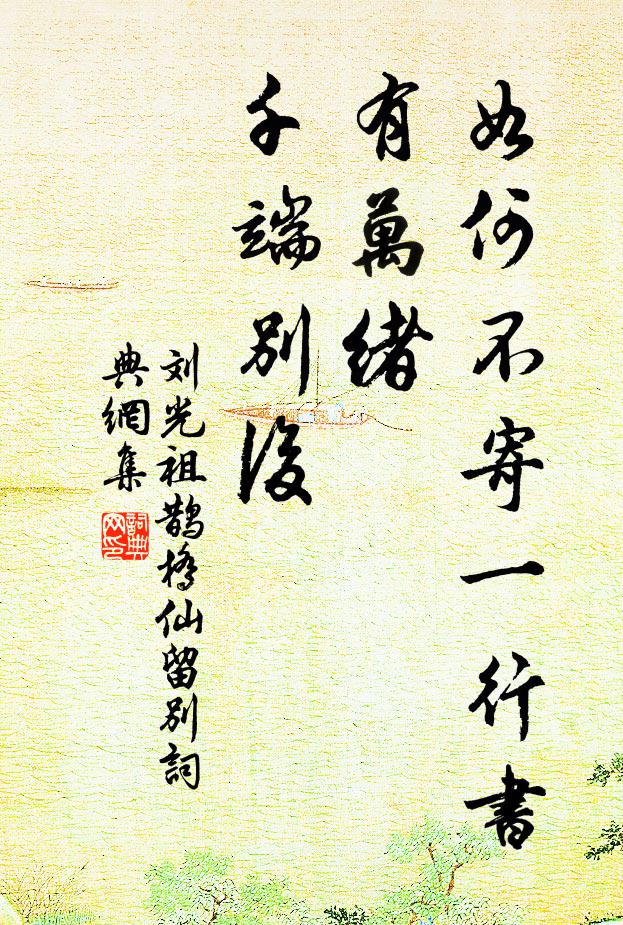 如何不寄一行書
有萬緒
千端別後
刘光祖鹊橋仙留别詞
典網集
詞典网印